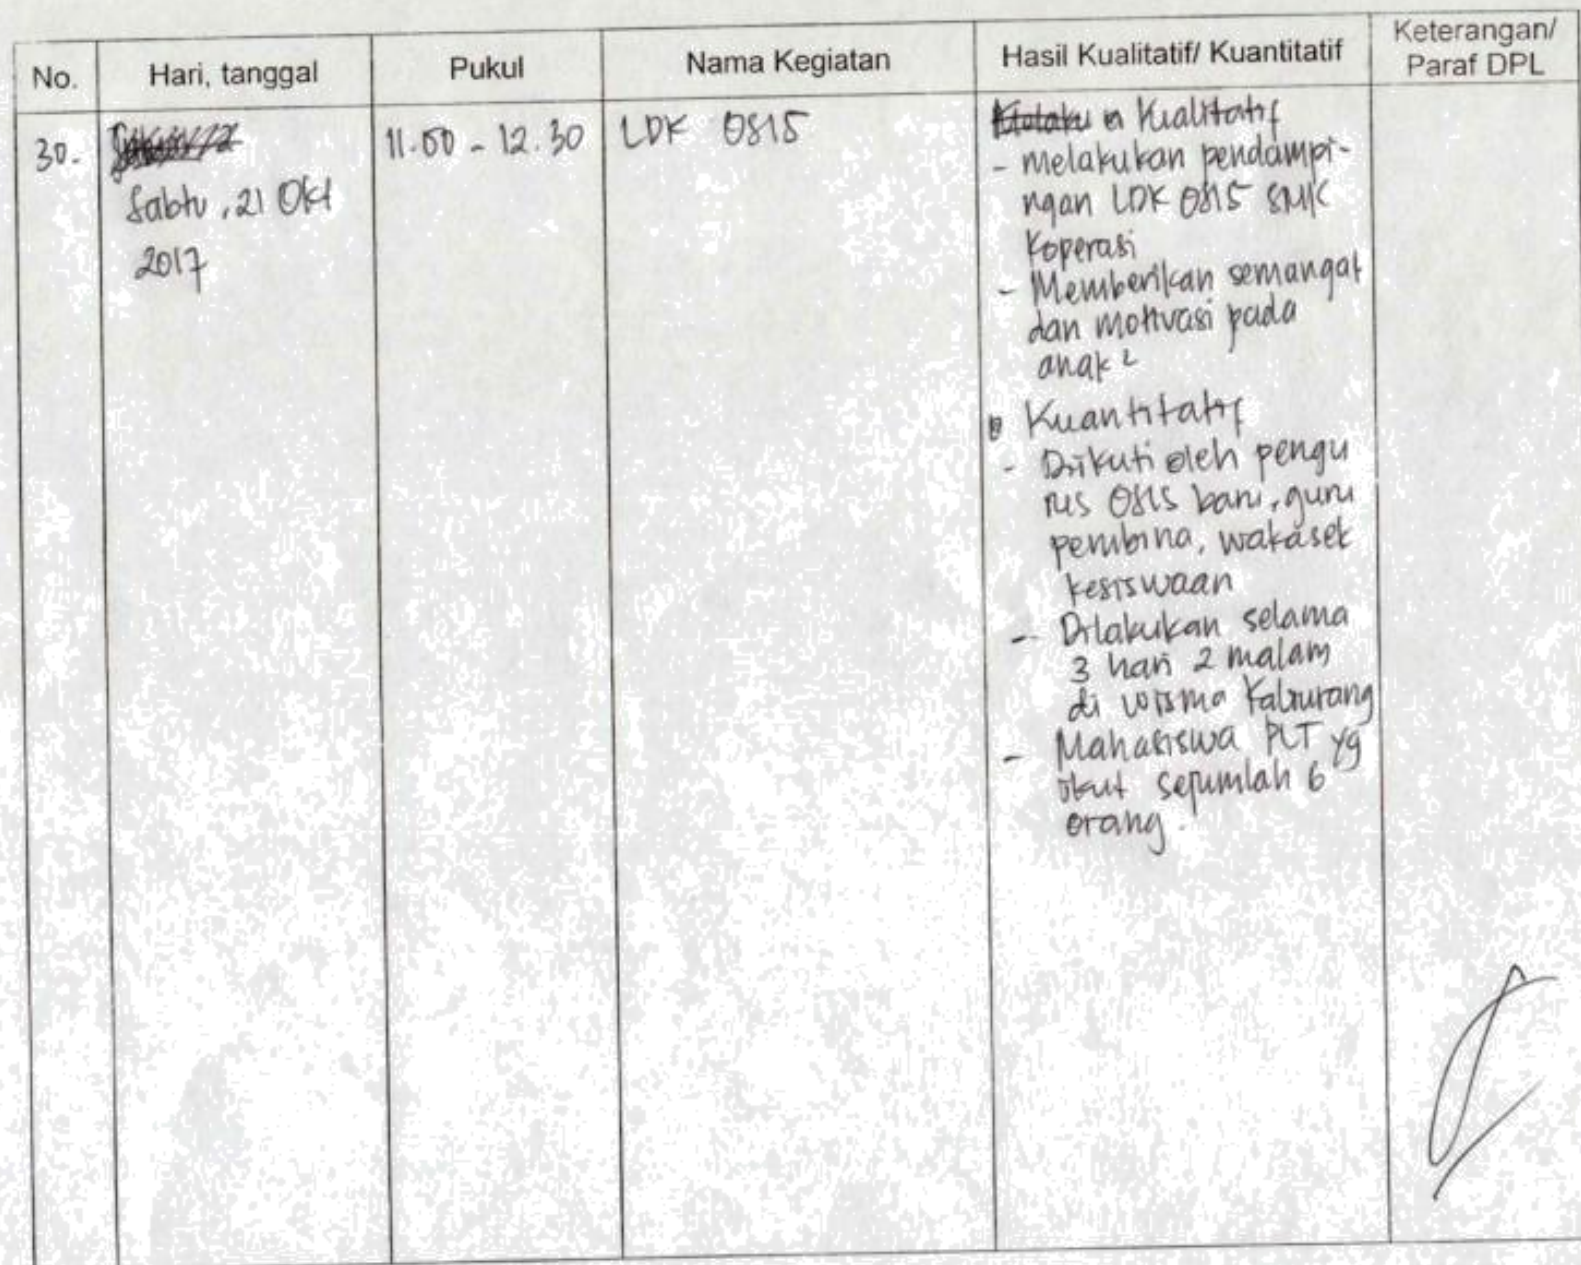 No.
Hari, tanggal
Pukul
Nama Kegiatan
Hasil Kualitatif/ Kuantitatif
Keterangan/
Paraf DPL
30.
Sabtu, 21 Okt
2017
11.00 - 12.30
LDK OSIS
Kualitatif
- Melakukan pendampi-
ngan LDK OSIS SMK
Koperasi
- Memberikan semangat
dan motivasi pada
anak²
Kuantitatif
- Diikuti oleh pengu
rus OSIS baru, guru
pembina, wakasek
kesiswaan
- Dilakukan selama
3 hari 2 malam
di wisma Kaliurang
- Mahasiswa PLT yg
ikut sejumlah 6
orang.